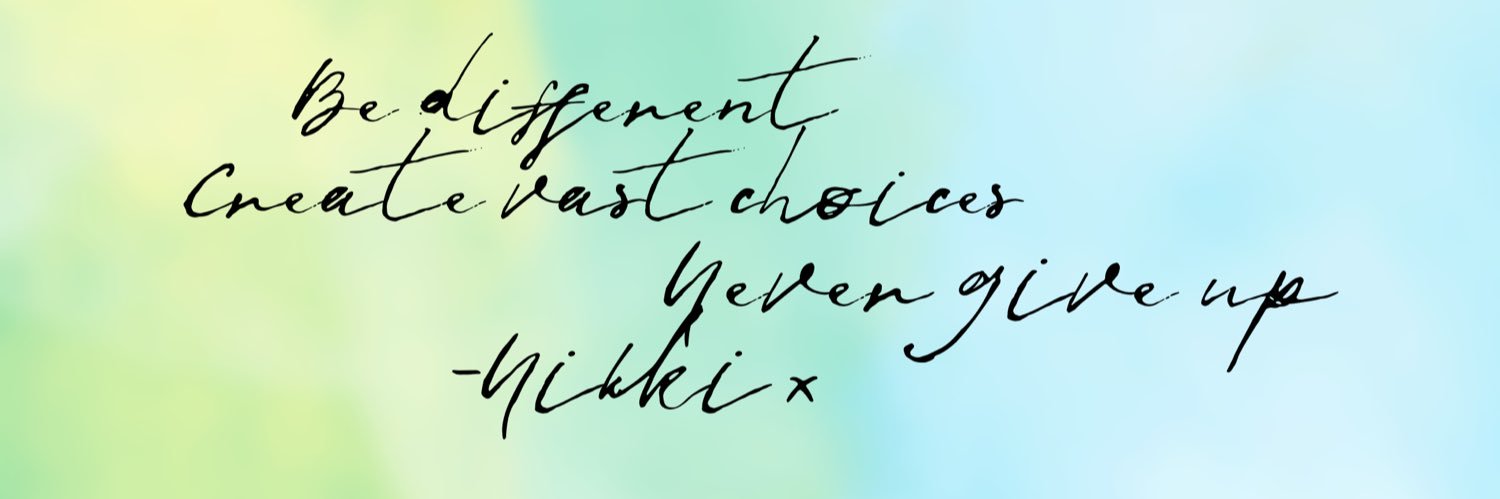 Be different
Create vast choices
Never give up
-Nikki x